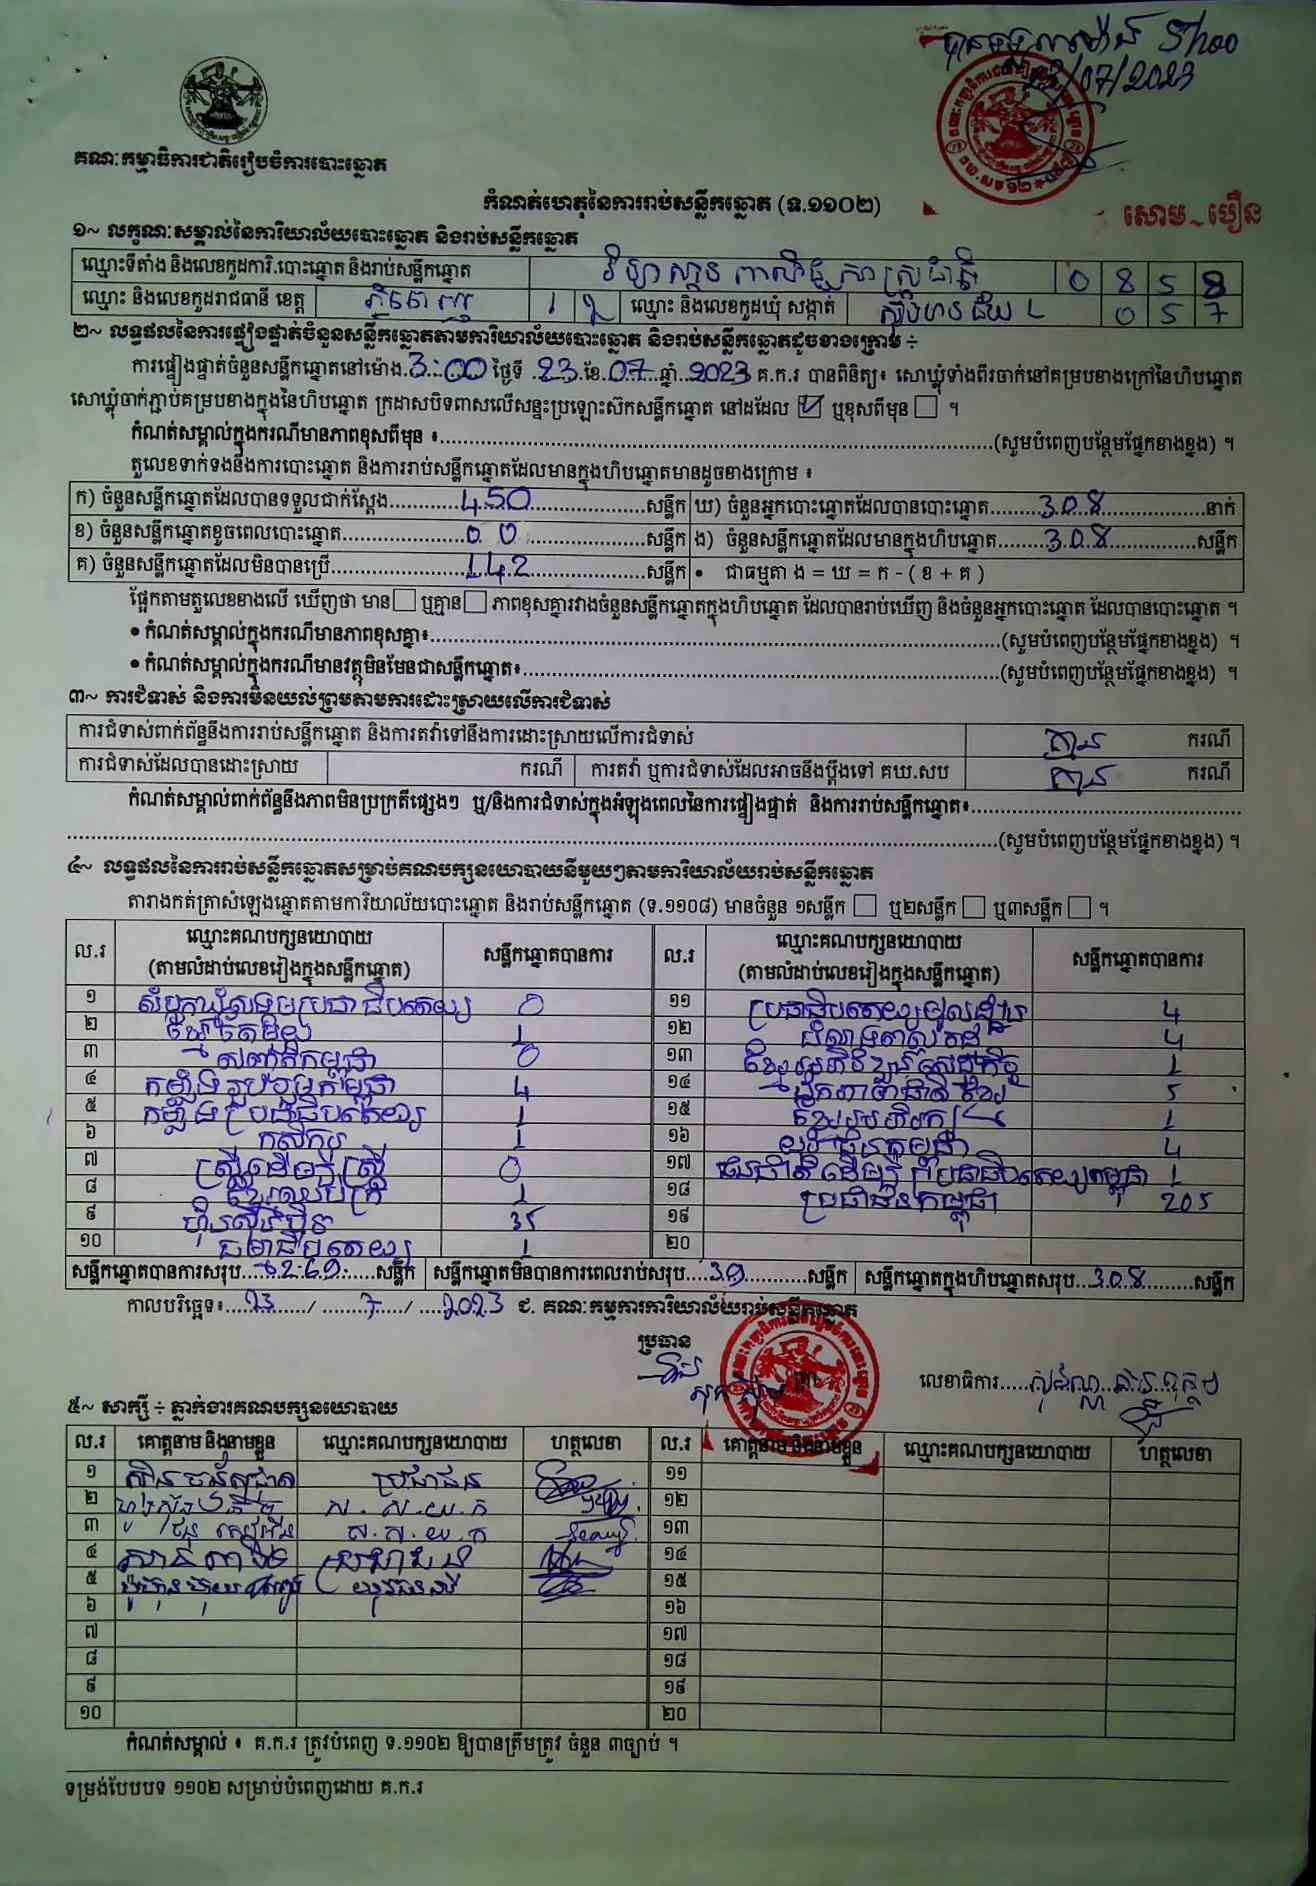 បានទទួលម៉ោង 5h00
23/07/2023
គណៈកម្មាធិការជាតិរៀបចំការបោះឆ្នោត
កំណត់ហេតុនៃការរាប់សន្លឹកឆ្នោត (ទ.១១០២)
សោម ~ បឿន
១~ លក្ខណៈសម្គាល់នៃការិយាល័យបោះឆ្នោត និងរាប់សន្លឹកឆ្នោត
ឈ្មោះទីតាំង និងលេខកូដការិ.បោះឆ្នោត និងរាប់សន្លឹកឆ្នោត វិទ្យាស្ថាន 0 8 5 8
ឈ្មោះ និងលេខកូដរាជធានី ខេត្ត ភ្នំពេញ 1 2 ឈ្មោះ និងលេខកូដឃុំ សង្កាត់ ស្ទឹងមានជ័យ 0 5 7
២~ លទ្ធផលនៃការផ្ទៀងផ្ទាត់ចំនួនសន្លឹកឆ្នោតតាមការិយាល័យបោះឆ្នោត និងរាប់សន្លឹកឆ្នោតដូចខាងក្រោម ÷
ការផ្ទៀងផ្ទាត់ចំនួនសន្លឹកឆ្នោតនៅម៉ោង 3:00 ថ្ងៃទី 23 ខែ 07 ឆ្នាំ 2023 គ.ក.រ បានពិនិត្យ៖ សោឃ្លុំទាំងពីរចាក់នៅគម្របខាងក្រៅនៃហិបឆ្នោត
សោឃ្លុំចាក់ភ្ជាប់គម្របខាងក្នុងនៃហិបឆ្នោត ក្រដាសបិទពាសលើសន្ទះប្រឡោះស៊កសន្លឹកឆ្នោត នៅដដែល ☑ ឬខុសពីមុន ☐ ។
កំណត់សម្គាល់ក្នុងករណីមានភាពខុសពីមុន ៖ (សូមបំពេញបន្ថែមផ្នែកខាងខ្នង) ។
តួលេខទាក់ទងនឹងការបោះឆ្នោត និងការរាប់សន្លឹកឆ្នោតដែលមានក្នុងហិបឆ្នោតមានដូចខាងក្រោម ៖
ក) ចំនួនសន្លឹកឆ្នោតដែលបានទទួលជាក់ស្តែង 450 សន្លឹក ឃ) ចំនួនអ្នកបោះឆ្នោតដែលបានបោះឆ្នោត 308 នាក់
ខ) ចំនួនសន្លឹកឆ្នោតខូចពេលបោះឆ្នោត 00 សន្លឹក ង) ចំនួនសន្លឹកឆ្នោតដែលមានក្នុងហិបឆ្នោត 308 សន្លឹក
គ) ចំនួនសន្លឹកឆ្នោតដែលមិនបានប្រើ 142 សន្លឹក • ជាធម្មតា ង = ឃ = ក - ( ខ + គ )
ផ្អែកតាមតួលេខខាងលើ ឃើញថា មាន ☐ ឬគ្មាន ☐ ភាពខុសគ្នារវាងចំនួនសន្លឹកឆ្នោតក្នុងហិបឆ្នោត ដែលបានរាប់ឃើញ និងចំនួនអ្នកបោះឆ្នោត ដែលបានបោះឆ្នោត ។
• កំណត់សម្គាល់ក្នុងករណីមានភាពខុសគ្នា៖ (សូមបំពេញបន្ថែមផ្នែកខាងខ្នង) ។
• កំណត់សម្គាល់ក្នុងករណីមានវត្ថុមិនមែនជាសន្លឹកឆ្នោត៖ (សូមបំពេញបន្ថែមផ្នែកខាងខ្នង) ។
៣~ ការជំទាស់ និងការមិនយល់ព្រមតាមការដោះស្រាយលើការជំទាស់
ការជំទាស់ពាក់ព័ន្ធនឹងការរាប់សន្លឹកឆ្នោត និងការតវ៉ាទៅនឹងការដោះស្រាយលើការជំទាស់ គ្មាន ករណី
ការជំទាស់ដែលបានដោះស្រាយ ករណី ការតវ៉ា ឬការជំទាស់ដែលអាចនឹងប្តឹងទៅ គឃ.សប គ្មាន ករណី
កំណត់សម្គាល់ពាក់ព័ន្ធនឹងភាពមិនប្រក្រតីផ្សេងៗ ឬ/និងការជំទាស់ក្នុងអំឡុងពេលនៃការផ្ទៀងផ្ទាត់ និងការរាប់សន្លឹកឆ្នោត៖
(សូមបំពេញបន្ថែមផ្នែកខាងខ្នង) ។
៤~ លទ្ធផលនៃការរាប់សន្លឹកឆ្នោតសម្រាប់គណបក្សនយោបាយនីមួយៗតាមការិយាល័យរាប់សន្លឹកឆ្នោត
តារាងកត់ត្រាសំឡេងឆ្នោតតាមការិយាល័យបោះឆ្នោត និងរាប់សន្លឹកឆ្នោត (ទ.១១០៨) មានចំនួន ១សន្លឹក ☐ ឬ២សន្លឹក ☐ ឬ៣សន្លឹក ☐ ។
ល.រ ឈ្មោះគណបក្សនយោបាយ (តាមលំដាប់លេខរៀងក្នុងសន្លឹកឆ្នោត) សន្លឹកឆ្នោតបានការ ល.រ ឈ្មោះគណបក្សនយោបាយ (តាមលំដាប់លេខរៀងក្នុងសន្លឹកឆ្នោត) សន្លឹកឆ្នោតបានការ
១ សំបុកឃ្មុំសង្គមប្រជាធិបតេយ្យ 0 ១១ ប្រជាធិបតេយ្យមូលដ្ឋាន 4
២ ខ្មែរតែមួយ 1 ១២ ជំនាន់ 4
៣ សញ្ជាតិកម្ពុជា 0 ១៣ ខ្មែរអភិវឌ្ឍន៍សេដ្ឋកិច្ច 1
៤ កម្លាំងរួបរួមកម្ពុជា 4 ១៤ ឯកភាពជាតិខ្មែរ 5
៥ កម្លាំងប្រជាធិបតេយ្យ 1 ១៥ ខ្មែរអភិរក្ស 1
៦ កសិករ 1 ១៦ យុវជនកម្ពុជា 4
៧ ស្ត្រីដើម្បីស្ត្រី 0 ១៧ ដើម្បី ប្រជាធិបតេយ្យកម្ពុជា 1
៨ ខ្មែរឈប់ក្រ 1 ១៨ ប្រជាជនកម្ពុជា 205
៩ ហ៊្វុនស៊ិនប៉ិច 35 ១៩
១០ ធម្មាធិបតេយ្យ 1 ២០
សន្លឹកឆ្នោតបានការសរុប 269 សន្លឹក សន្លឹកឆ្នោតមិនបានការពេលរាប់សរុប 39 សន្លឹក សន្លឹកឆ្នោតក្នុងហិបឆ្នោតសរុប 308 សន្លឹក
កាលបរិច្ឆេទ៖ 23 / 7 / 2023 ជ. គណៈកម្មការការិយាល័យរាប់សន្លឹកឆ្នោត
ប្រធាន
លេខាធិការ
៥~ សាក្សី ÷ ភ្នាក់ងារគណបក្សនយោបាយ
ល.រ គោត្តនាម និងនាមខ្លួន ឈ្មោះគណបក្សនយោបាយ ហត្ថលេខា ល.រ គោត្តនាម និងនាមខ្លួន ឈ្មោះគណបក្សនយោបាយ ហត្ថលេខា
១ ប្រជាជន ១១
២ ស.ស.យ.ក ១២
៣ ស.ស.យ.ក ១៣
៤ ១៤
៥ ១៥
៦ ១៦
៧ ១៧
៨ ១៨
៩ ១៩
១០ ២០
កំណត់សម្គាល់ ៖ គ.ក.រ ត្រូវបំពេញ ទ.១១០២ ឱ្យបានត្រឹមត្រូវ ចំនួន ៣ច្បាប់ ។
ទម្រង់បែបបទ ១១០២ សម្រាប់បំពេញដោយ គ.ក.រ